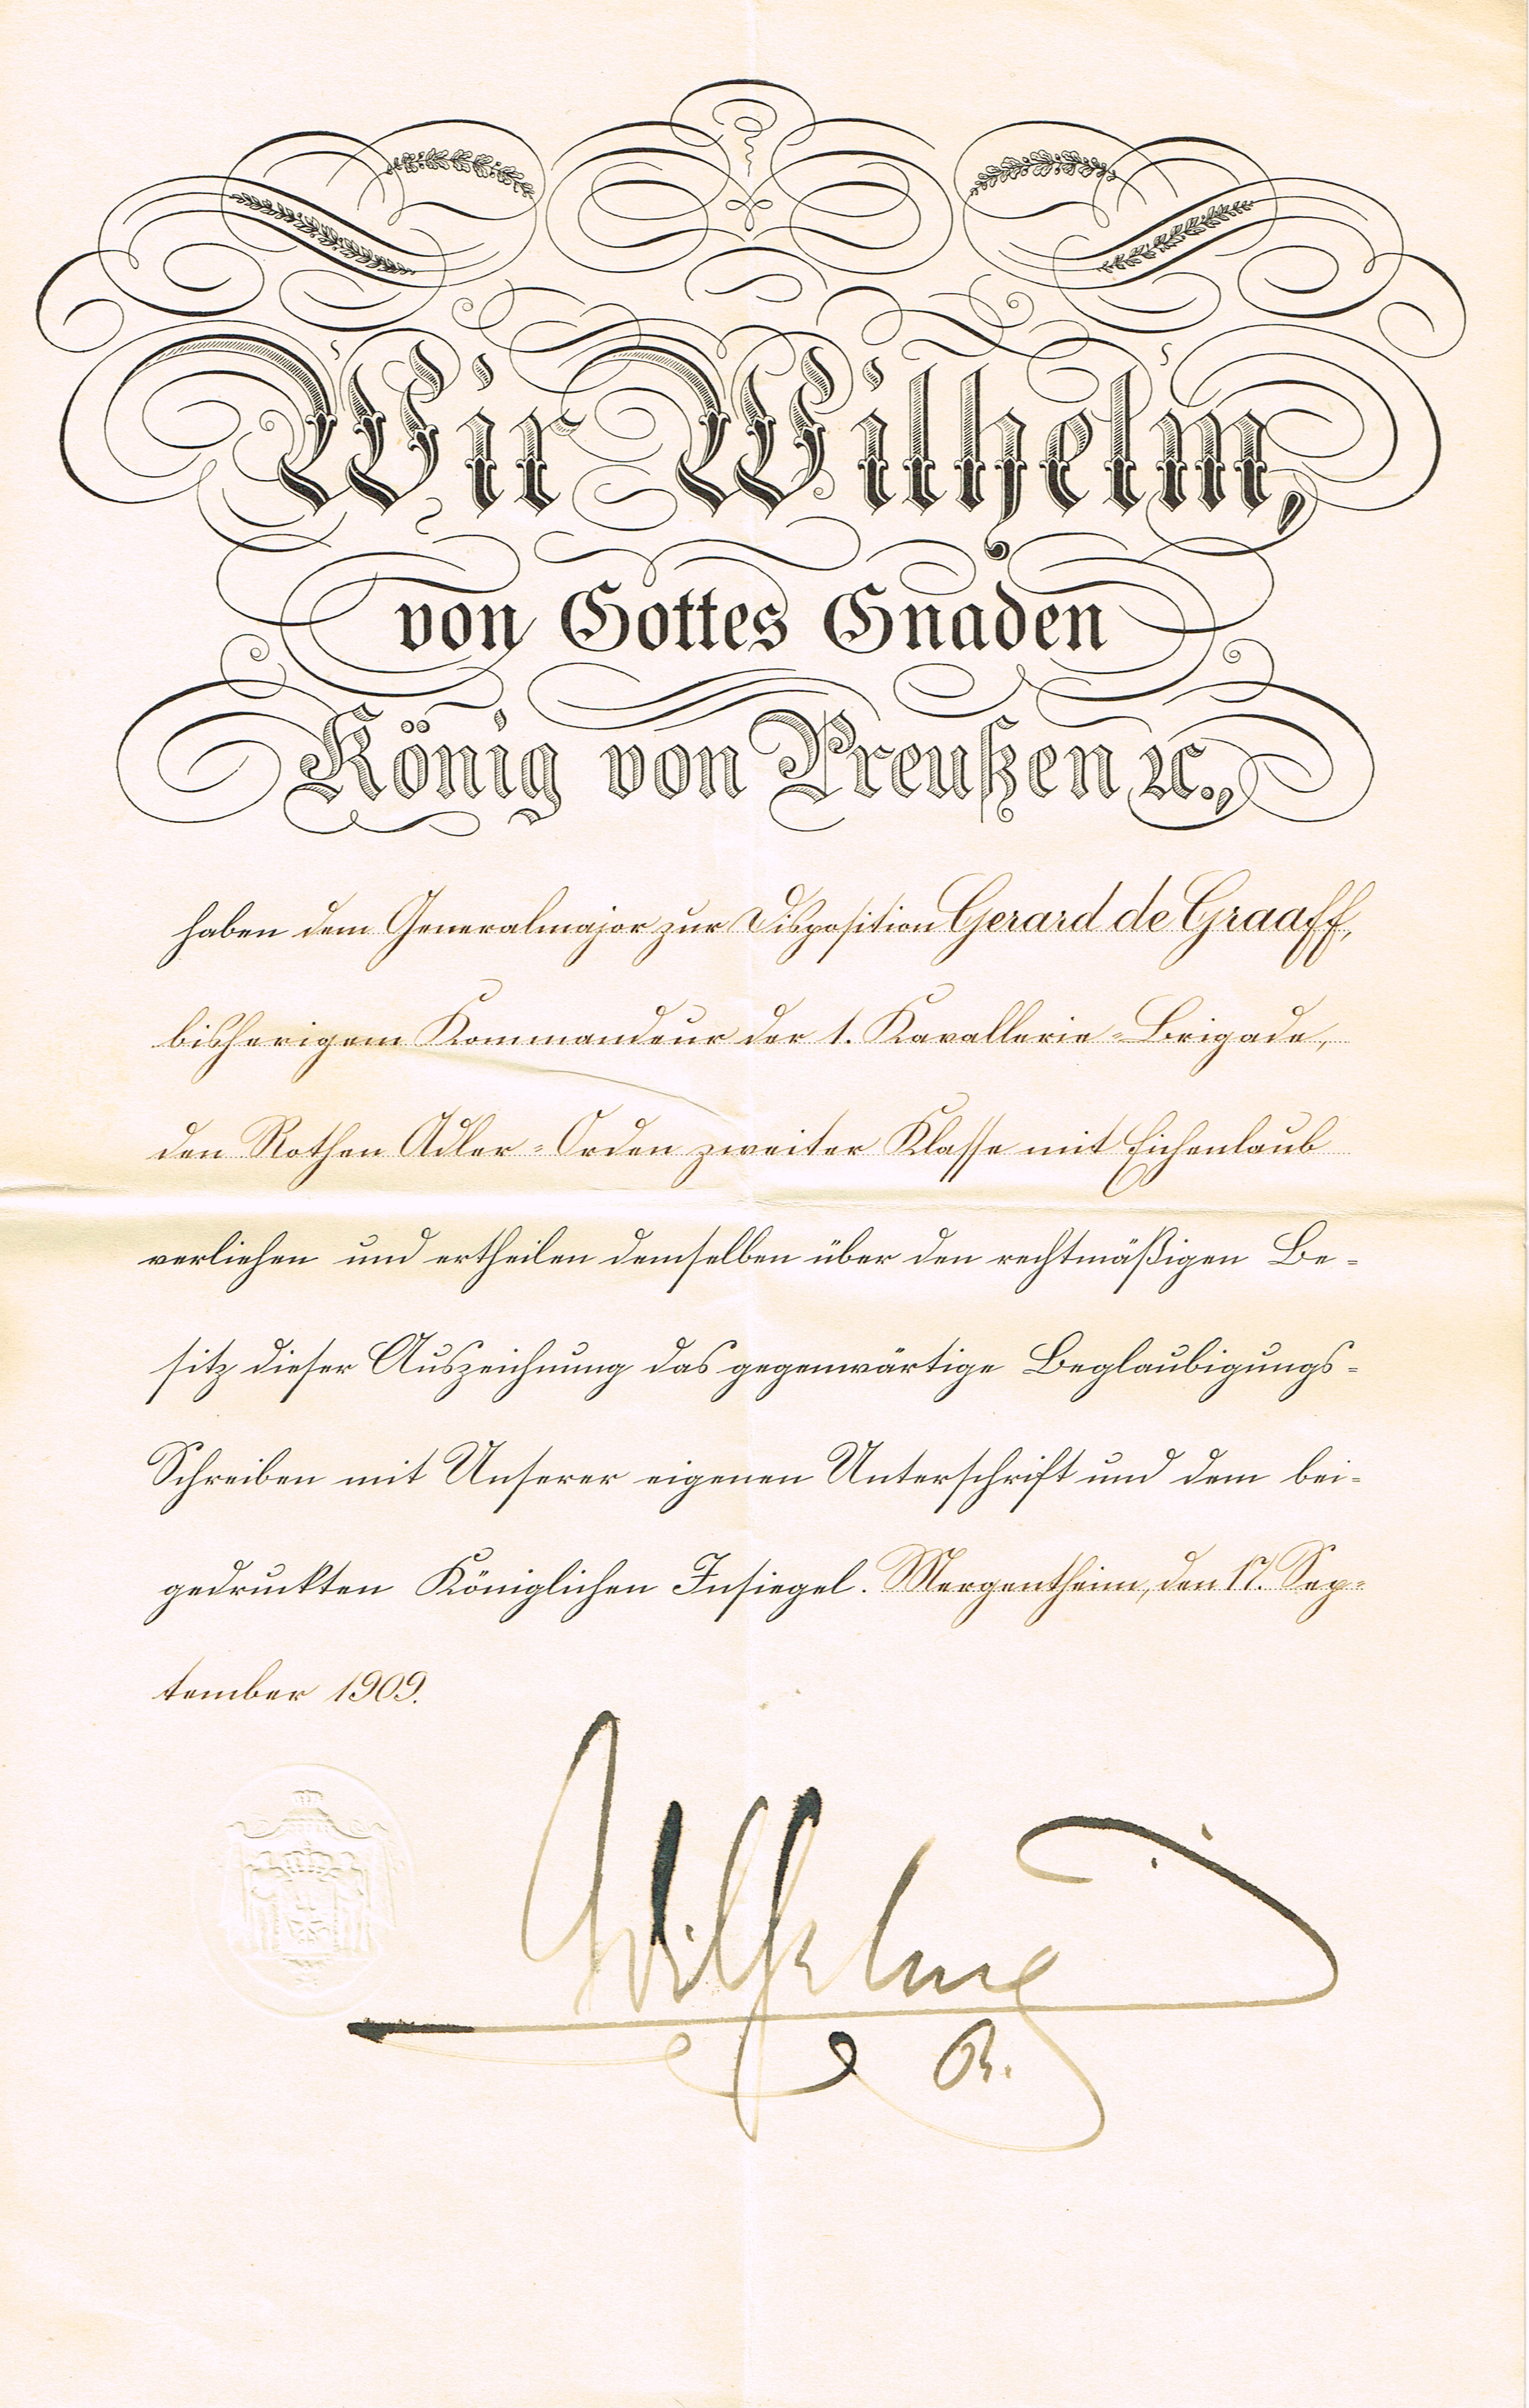 Wir Wilhelm,
von Gottes Gnaden
König von Preußen ꝛc.,
haben dem Generalmajor zur Disposition Gerard de Graaff,
bisherigem Kommandeur der 1. Kavallerie-Brigade,
den Rothen Adler-Orden zweiter Klasse mit Eichenlaub
verliehen und ertheilen demselben über den rechtmäßigen Be-
sitz dieser Auszeichnung das gegenwärtige Beglaubigungs-
Schreiben mit Unserer eigenen Unterschrift und dem bei-
gedruckten Königlichen Insiegel. Mergentheim, den 17. Sep-
tember 1909.
Wilhelm
R.